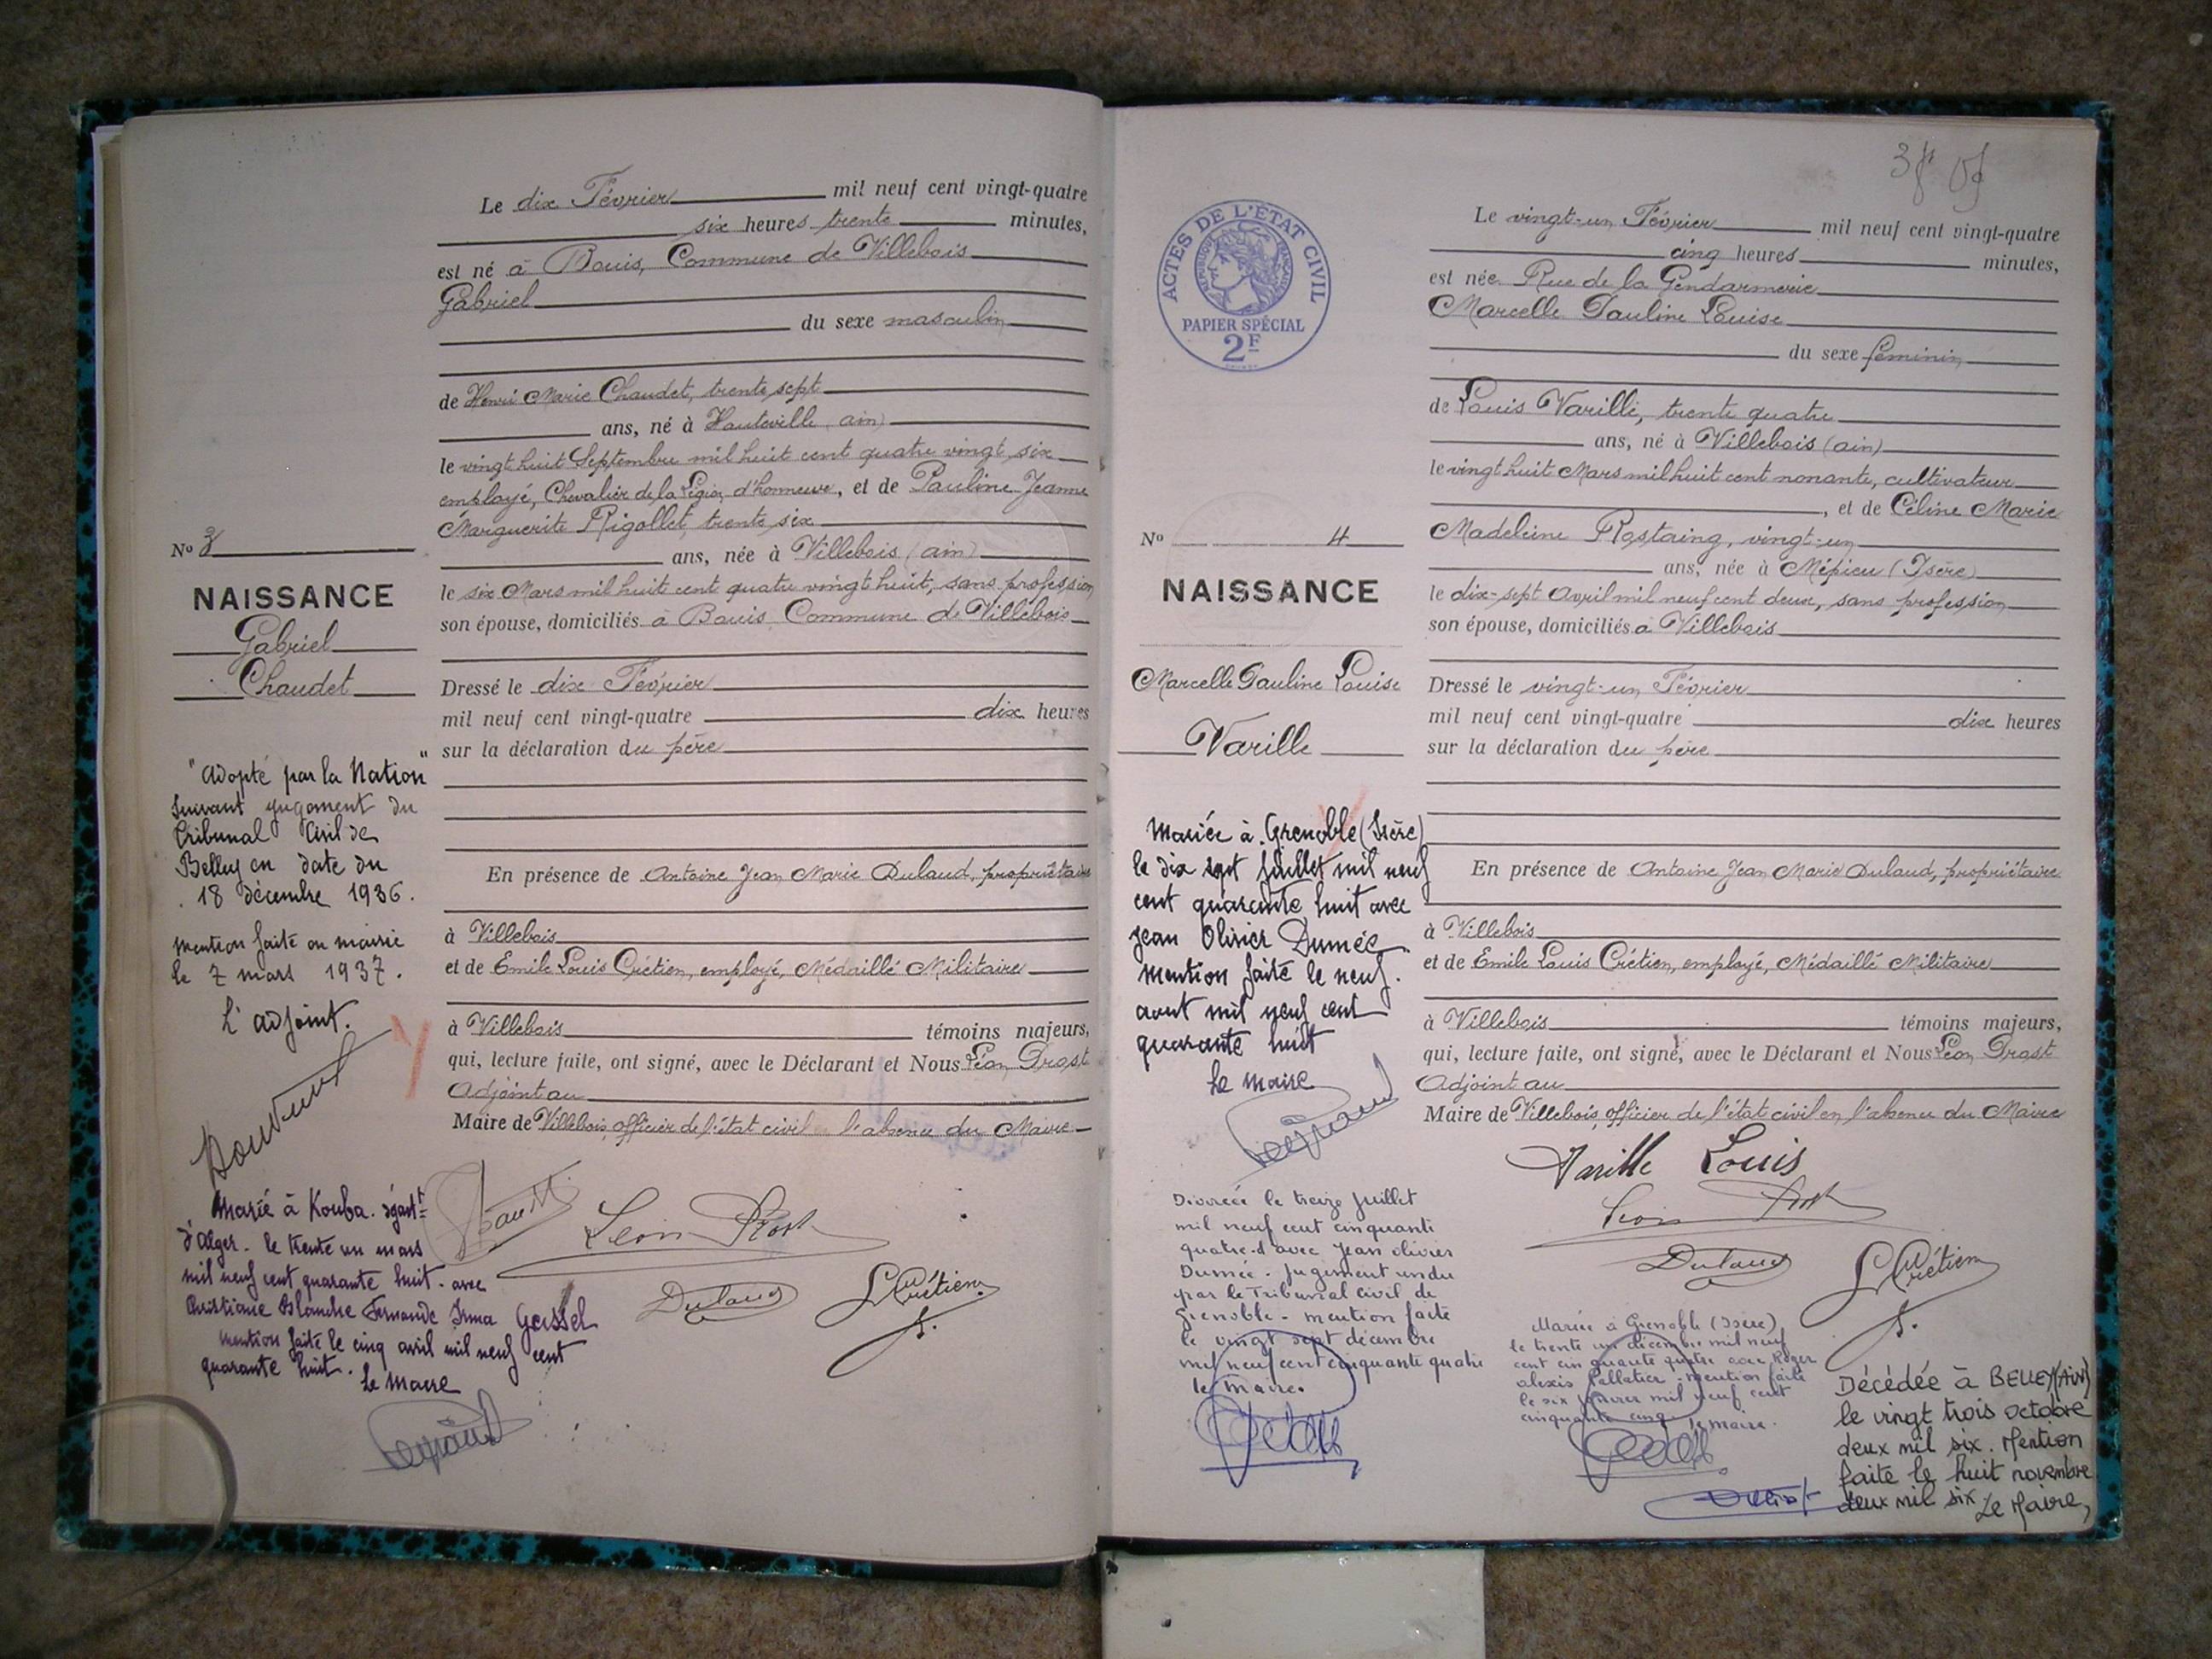 Le dix Février mil neuf cent vingt-quatre
six heures trente minutes,
est né à Bouis, Commune de Villebois
Gabriel
du sexe masculin
de Henri Marie Chaudet, trente sept
ans, né à Hauteville (ain)
le vingt huit Septembre mil huit cent quatre vingt six
employé, Chevalier de la Légion d'honneur, et de Pauline Jeanne
Marguerite Rigollet, trente six
ans, née à Villebois (ain)
le six Mars mil huit cent quatre vingt huit, sans profession
son épouse, domiciliés à Bouis Commune de Villebois
Dressé le dix Février
mil neuf cent vingt-quatre dix heures
sur la déclaration du père
En présence de Antoine Jean Marie Dulaud, propriétaire
à Villebois
et de Emile Louis Crétien, employé, Médaillé Militaire
à Villebois témoins majeurs,
qui, lecture faite, ont signé, avec le Déclarant et Nous Léon Prost
Adjoint au
Maire de Villebois, officier de l'état civil l'absence du Maire
Léon Prost
Dulaud
Crétien
No 3
NAISSANCE
Gabriel
Chaudet
"Adopté par la Nation"
suivant jugement du
Tribunal Civil de
Belley en date du
18 décembre 1936.
Mention faite en mairie
le 7 mars 1937.
L'adjoint.
Marié à Kouba. départ
d'Alger. le trente un mars
mil neuf cent quarante huit. avec
Christiane Blanche Fernande Irma Gessel
mention faite le cinq avril mil neuf cent
quarante huit.
Le Maire
ACTES DE L'ÉTAT CIVIL
RÉPUBLIQUE FRANÇAISE
PAPIER SPÉCIAL
2F
Le vingt-un Février mil neuf cent vingt-quatre
cinq heures minutes,
est née Rue de la Gendarmerie
Marcelle Pauline Louise
du sexe féminin
de Louis Varille, trente quatre
ans, né à Villebois (ain)
le vingt huit Mars mil huit cent nonante, cultivateur
, et de Céline Marie
Madeleine Rostaing, vingt-un
ans, née à Mépieu (Isère)
le dix-sept Avril mil neuf cent deux, sans profession
son épouse, domiciliés à Villebois
Dressé le vingt-un Février
mil neuf cent vingt-quatre dix heures
sur la déclaration du père
En présence de Antoine Jean Marie Dulaud, propriétaire
à Villebois
et de Emile Louis Crétien, employé, Médaillé Militaire
à Villebois témoins majeurs,
qui, lecture faite, ont signé, avec le Déclarant et Nous Léon Prost
Adjoint au
Maire de Villebois, officier de l'état civil en l'absence du Maire
Varille Louis
Léon Prost
Dulaud
Crétien
No 4
NAISSANCE
Marcelle Pauline Louise
Varille
Mariée à Grenoble (Isère)
le dix sept juillet mil neuf
cent quarante huit avec
Jean Olivier Dumée
mention faite le neuf
aout mil neuf cent
quarante huit
Le Maire
Divorcée le treize juillet
mil neuf cent cinquante
quatre d'avec Jean Olivier
Dumée. Jugement rendu
par le Tribunal Civil de
Grenoble - mention faite
le vingt sept décembre
mil neuf cent cinquante quatre
le Maire.
Mariée à Grenoble (Isère)
le trente un décembre mil neuf
cent cinquante quatre avec Roger
Alexis Pellatier. mention faite
le six janvier mil neuf cent
cinquante cinq le maire.
Décédée à BELLEY (AIN)
le vingt trois octobre
deux mil six. Mention
faite le huit novembre
deux mil six Le Maire,